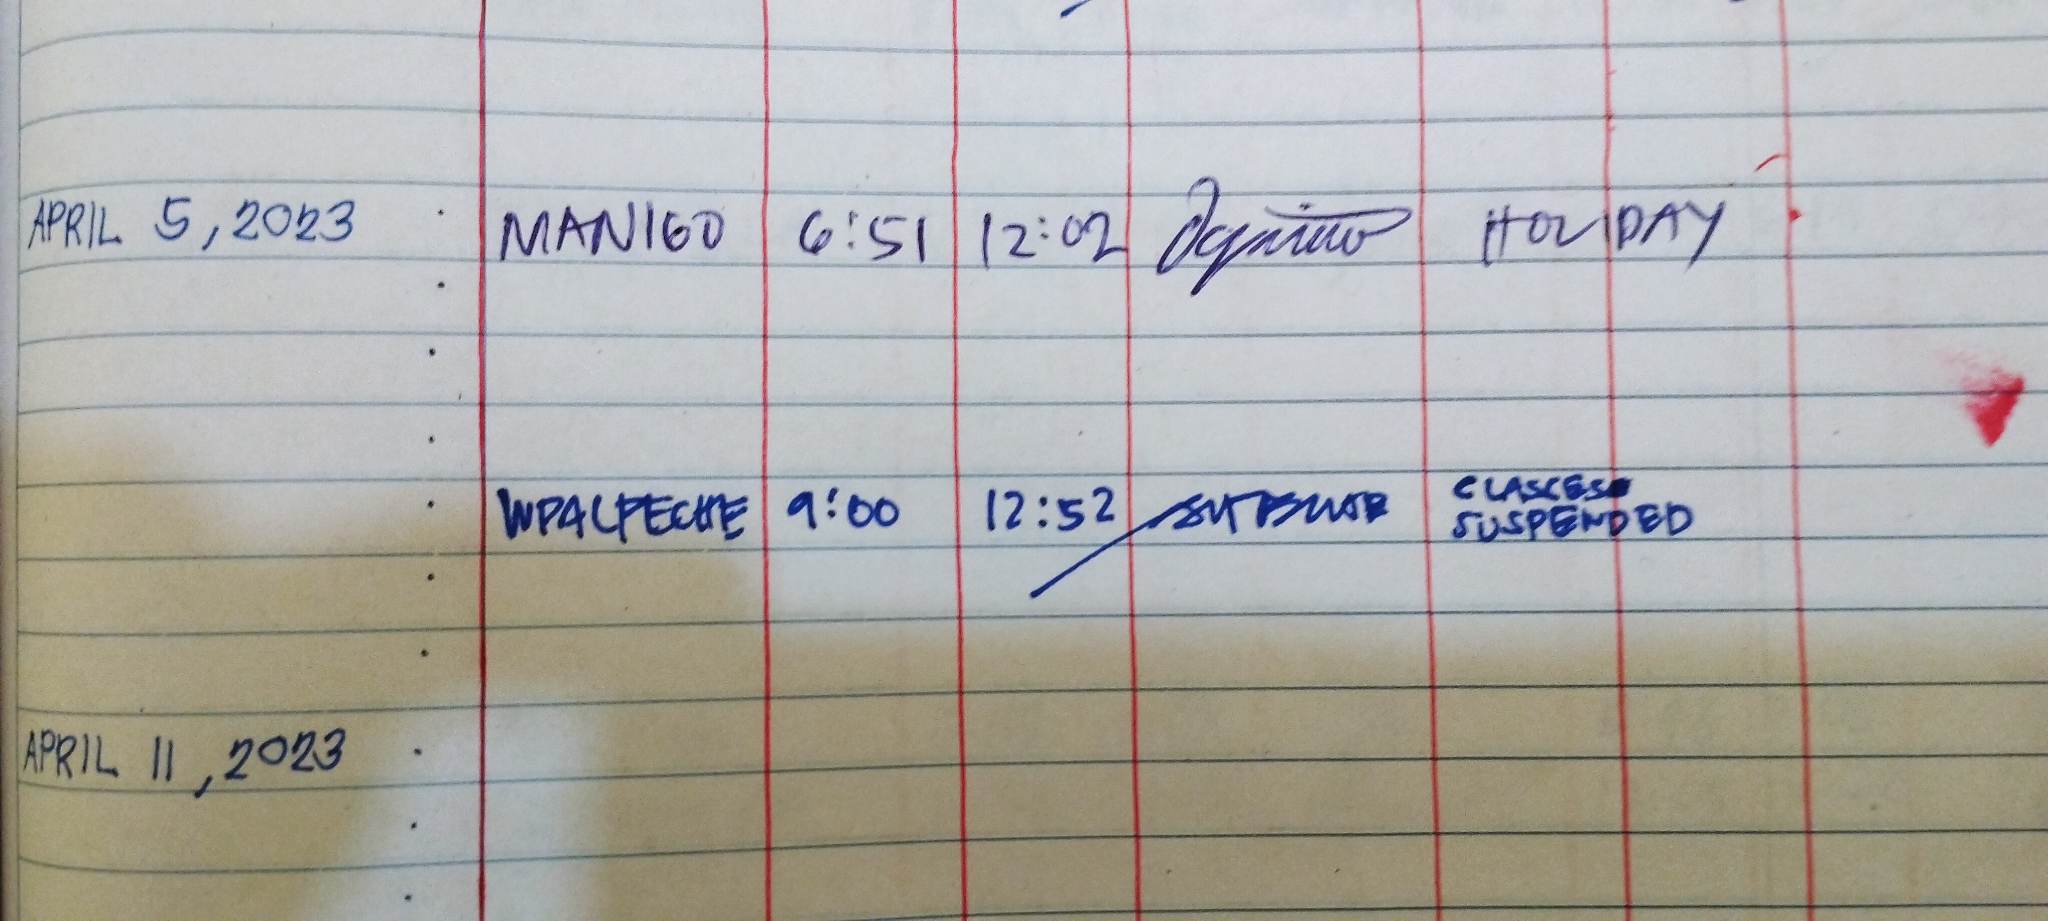 APRIL 5, 2023 MANIGO 6:51 12:02 HOLIDAY
WPALPECHE 9:00 12:52 CLASCES
SUSPENDED
APRIL 11, 2023